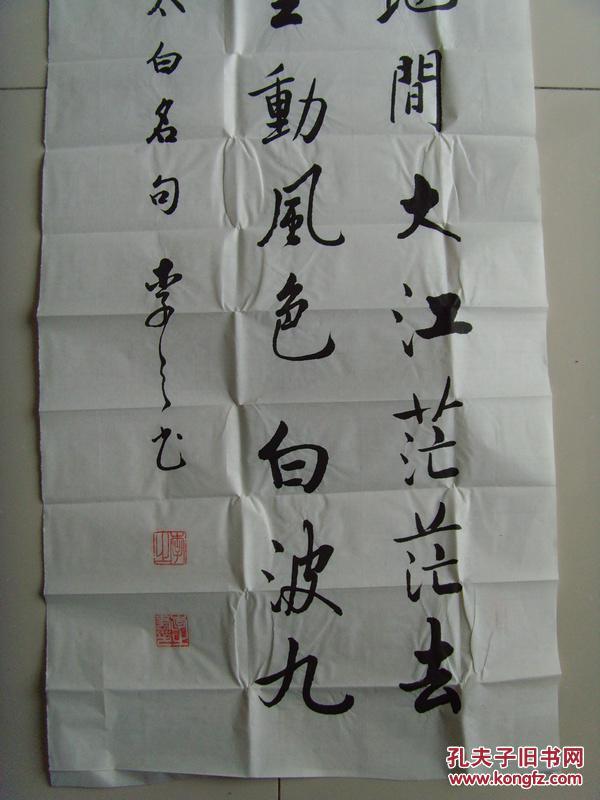 地間大江茫茫去
里動風色白波九
太白名句 李之书
孔夫子旧书网
www.kongfz.com